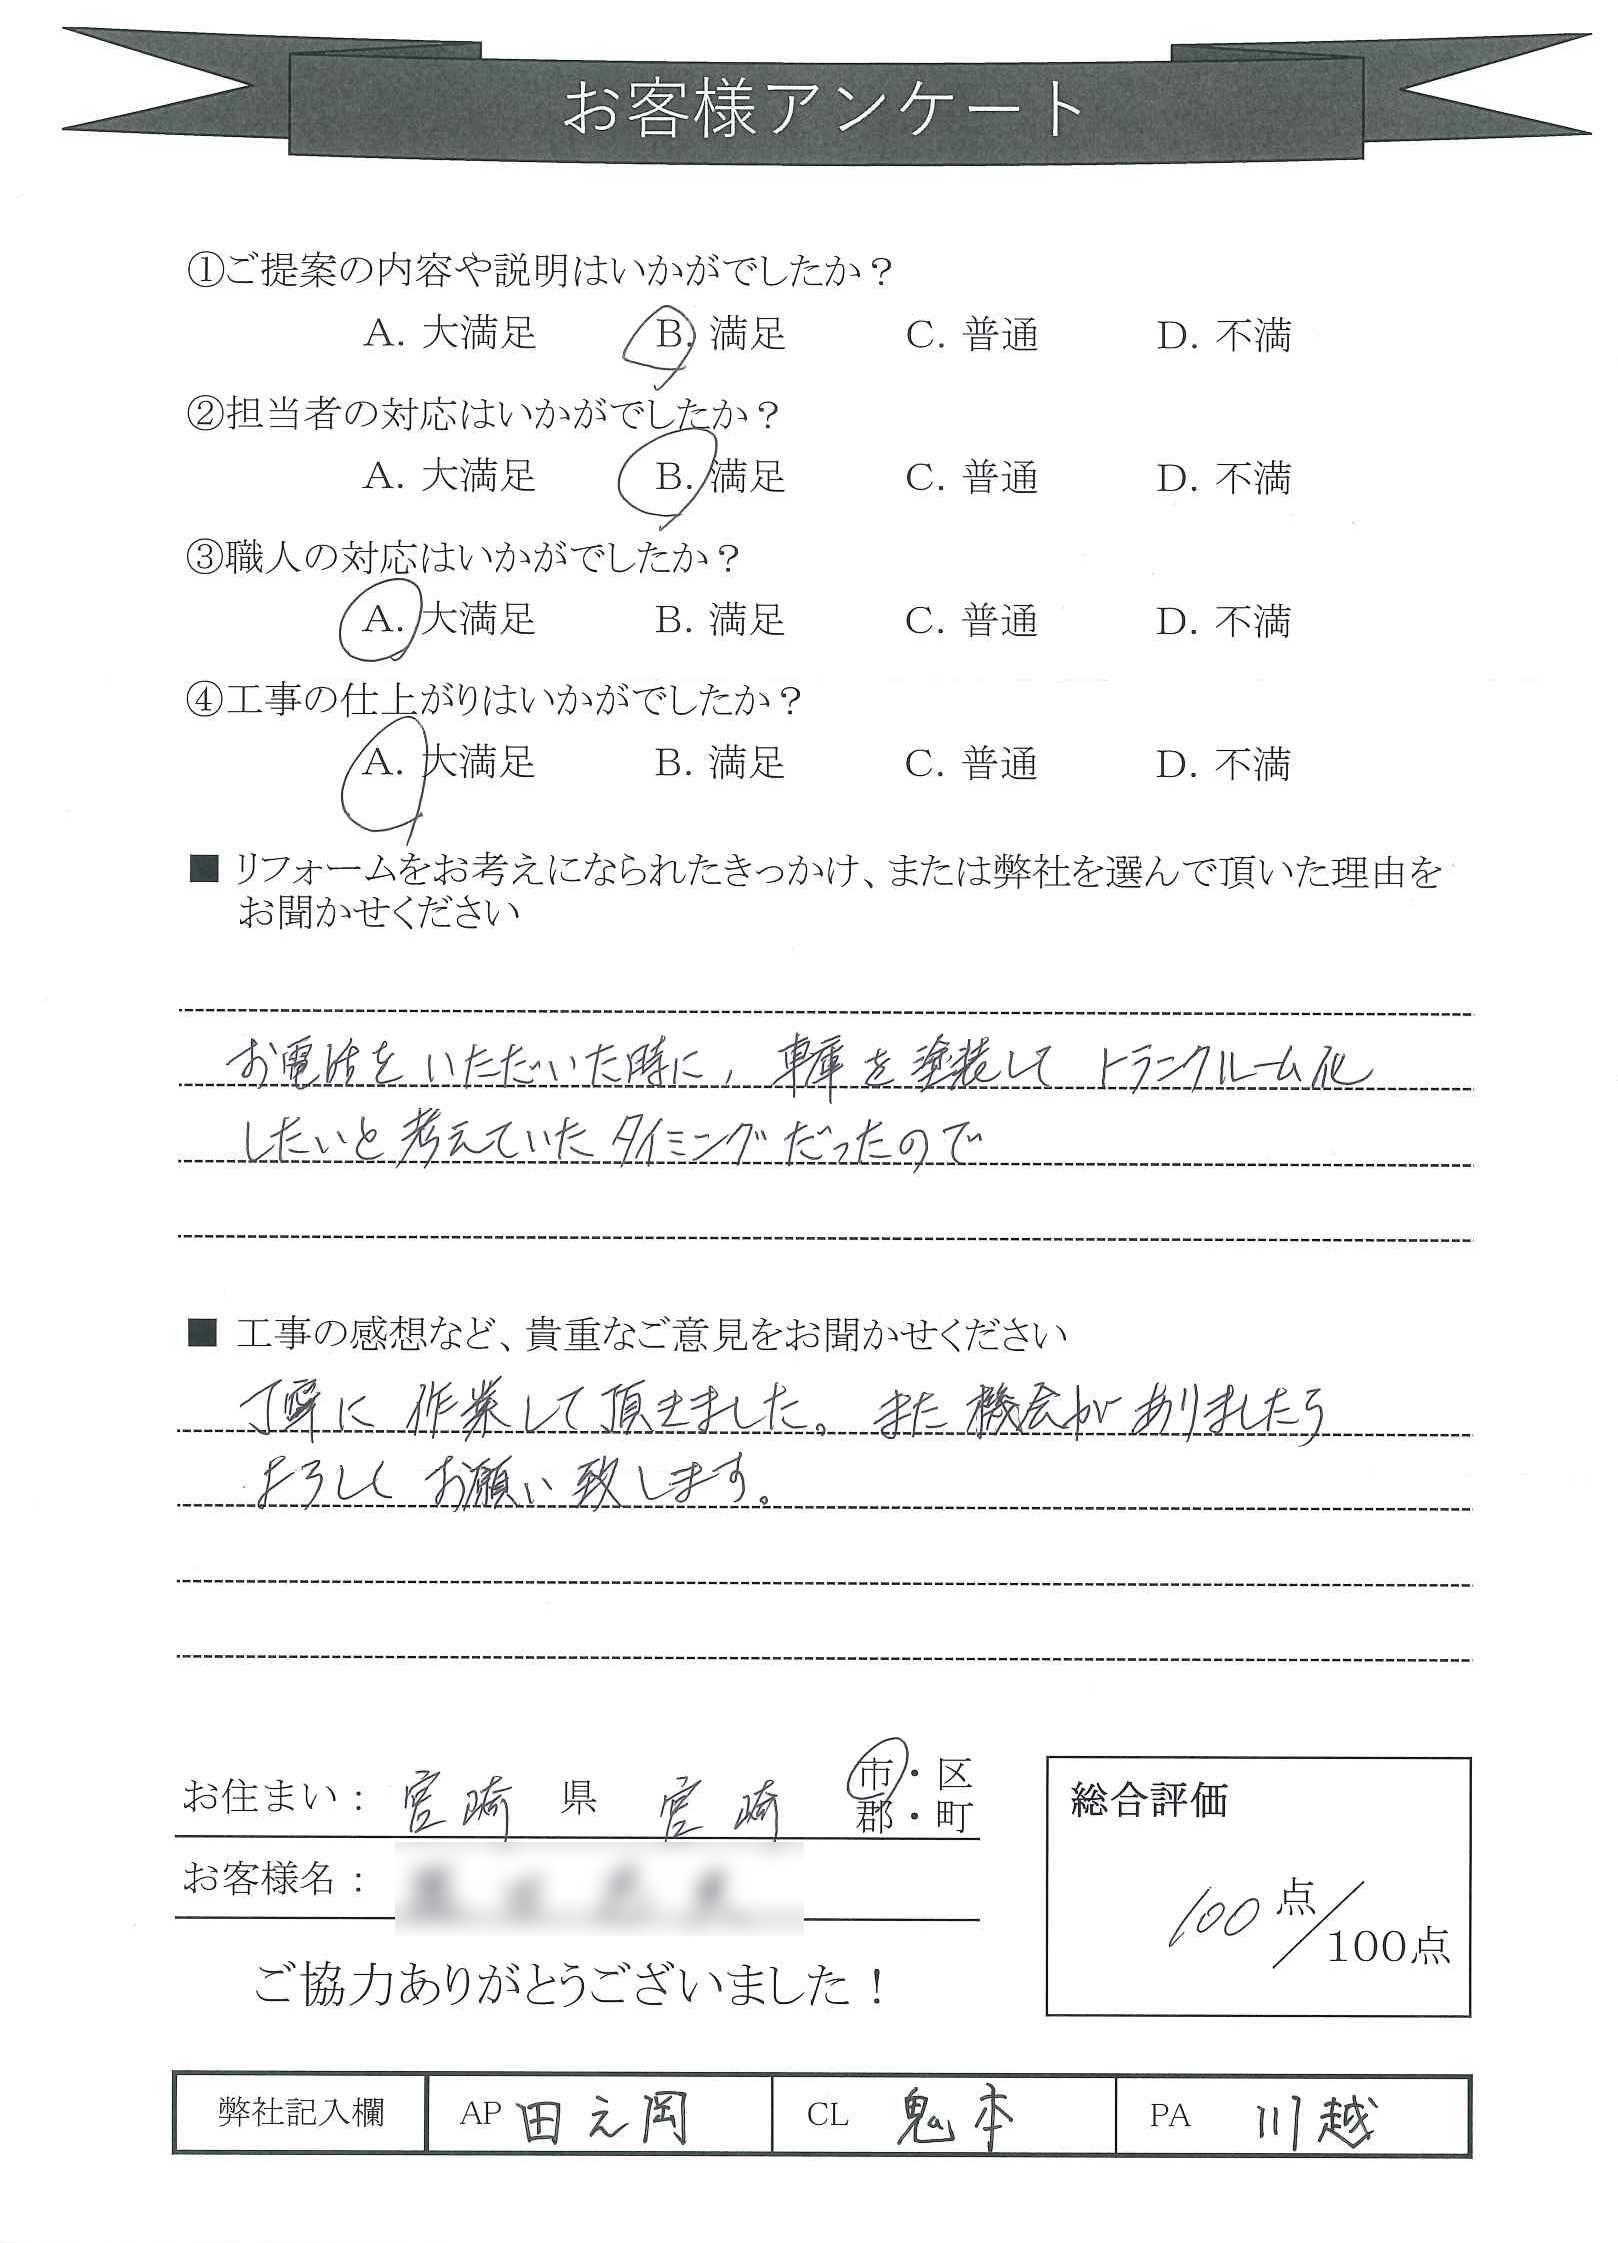 お客様アンケート
①ご提案の内容や説明はいかがでしたか？
A. 大満足 B. 満足 C. 普通 D. 不満
②担当者の対応はいかがでしたか？
A. 大満足 B. 満足 C. 普通 D. 不満
③職人の対応はいかがでしたか？
A. 大満足 B. 満足 C. 普通 D. 不満
④工事の仕上がりはいかがでしたか？
A. 大満足 B. 満足 C. 普通 D. 不満
■ リフォームをお考えになられたきっかけ、または弊社を選んで頂いた理由を
お聞かせください
お電話をいただいた時に、車庫を塗装してトランクルーム化
したいと考えていたタイミングだったので
■ 工事の感想など、貴重なご意見をお聞かせください
丁寧に作業して頂きました。また機会がありましたら
よろしくお願い致します。
お住まい： 宮崎 県 宮崎 市・区
郡・町
お客様名：
ご協力ありがとうございました！
総合評価
100 点／100点
弊社記入欄 AP 田之岡 CL 鬼本 PA 川越